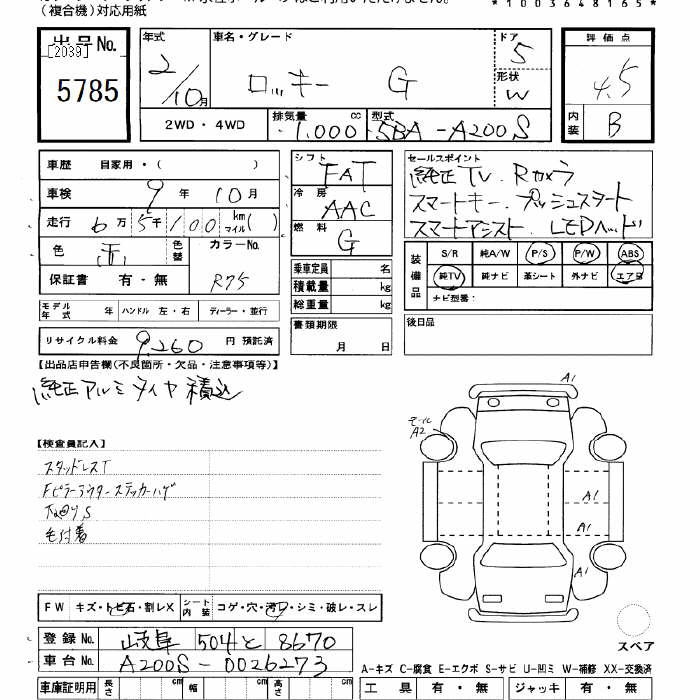 （複合機）対応用紙
*1003648165*
出品No.
[2039]
5785
年式
2/10月
車名・グレード
ロッキー G
ドア
5
形状
W
評価点
4.5
内装
B
2WD・4WD
排気量 cc
1,000
型式
5BA-A200S
車歴 自家用・( )
車検 9年10月
走行 6万5千100 km マイル( )
色 赤 色替
カラーNo.
R75
保証書 有・無
モデル年式 年 ハンドル 左・右 ディーラー・並行
リサイクル料金 9,260 円 預託済
シフト
FAT
冷房
AAC
燃料
G
乗車定員 名
積載量 kg
総重量 kg
書類期限
月 日
セールスポイント
純正TV.Rカメラ
スマートキー.プッシュスタート
スマートアシスト LEDヘッド
装備品
S/R 純A/W P/S P/W ABS
純TV 純ナビ 革シート 外ナビ エアB
ナビ型番：
後日品
【出品店申告欄(不良箇所・欠品・注意事項等)】
純正アルミタイヤ積込
【検査員記入】
スタッドレスT
Fピラーアウターステッカーハゲ
毛付着
A1
モール
A2
A1
A1
スペア
FW キズ・トビ石・割レX
シート内装 コゲ・穴・汚レ・シミ・破レ・スレ
登録No. 岐阜 504 と 8670
車台No. A200S-0026273
A-キズ C-腐食 E-エクボ S-サビ U-凹ミ W-補修 XX-交換済
車庫証明用 長さ cm 幅 cm 高さ cm
工具 有・無 ジャッキ 有・無